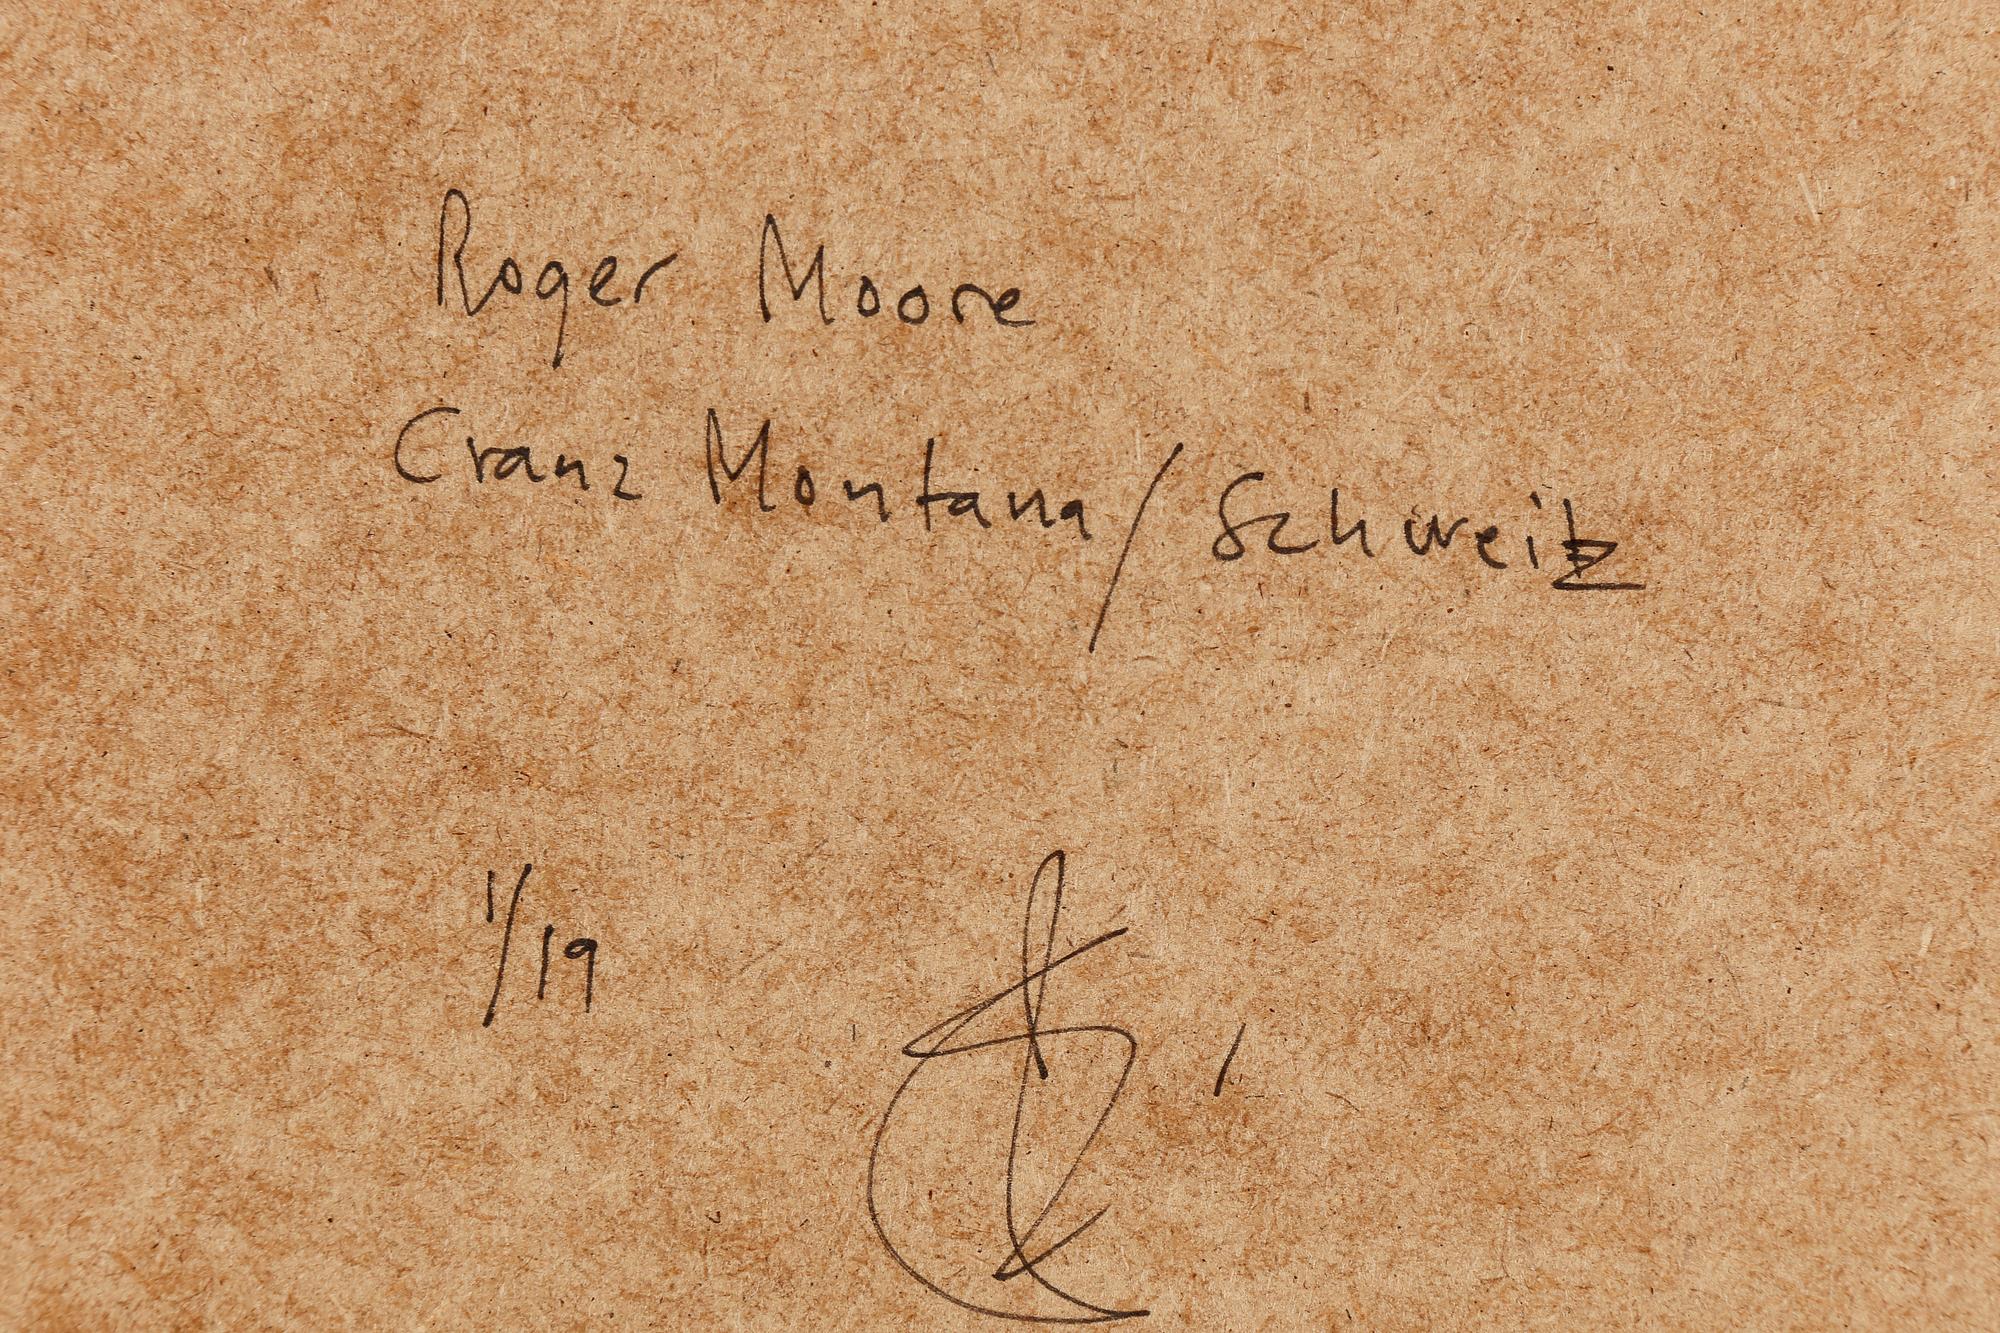 Roger Moore
Cranz Montana/Schweiz
1/19